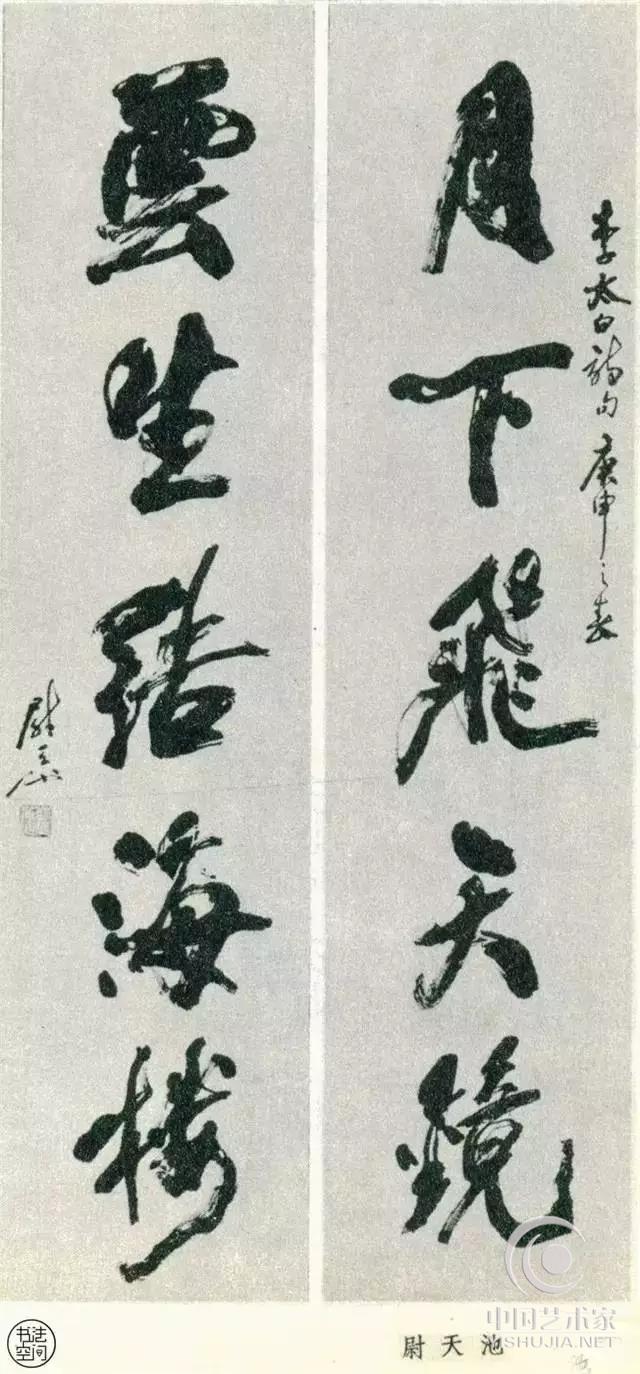 月下飛天鏡
李太白詩句 庚申之春
雲生結海樓
尉天池
尉天池
书法
空间
中国艺术家
ISHUJIA.NET